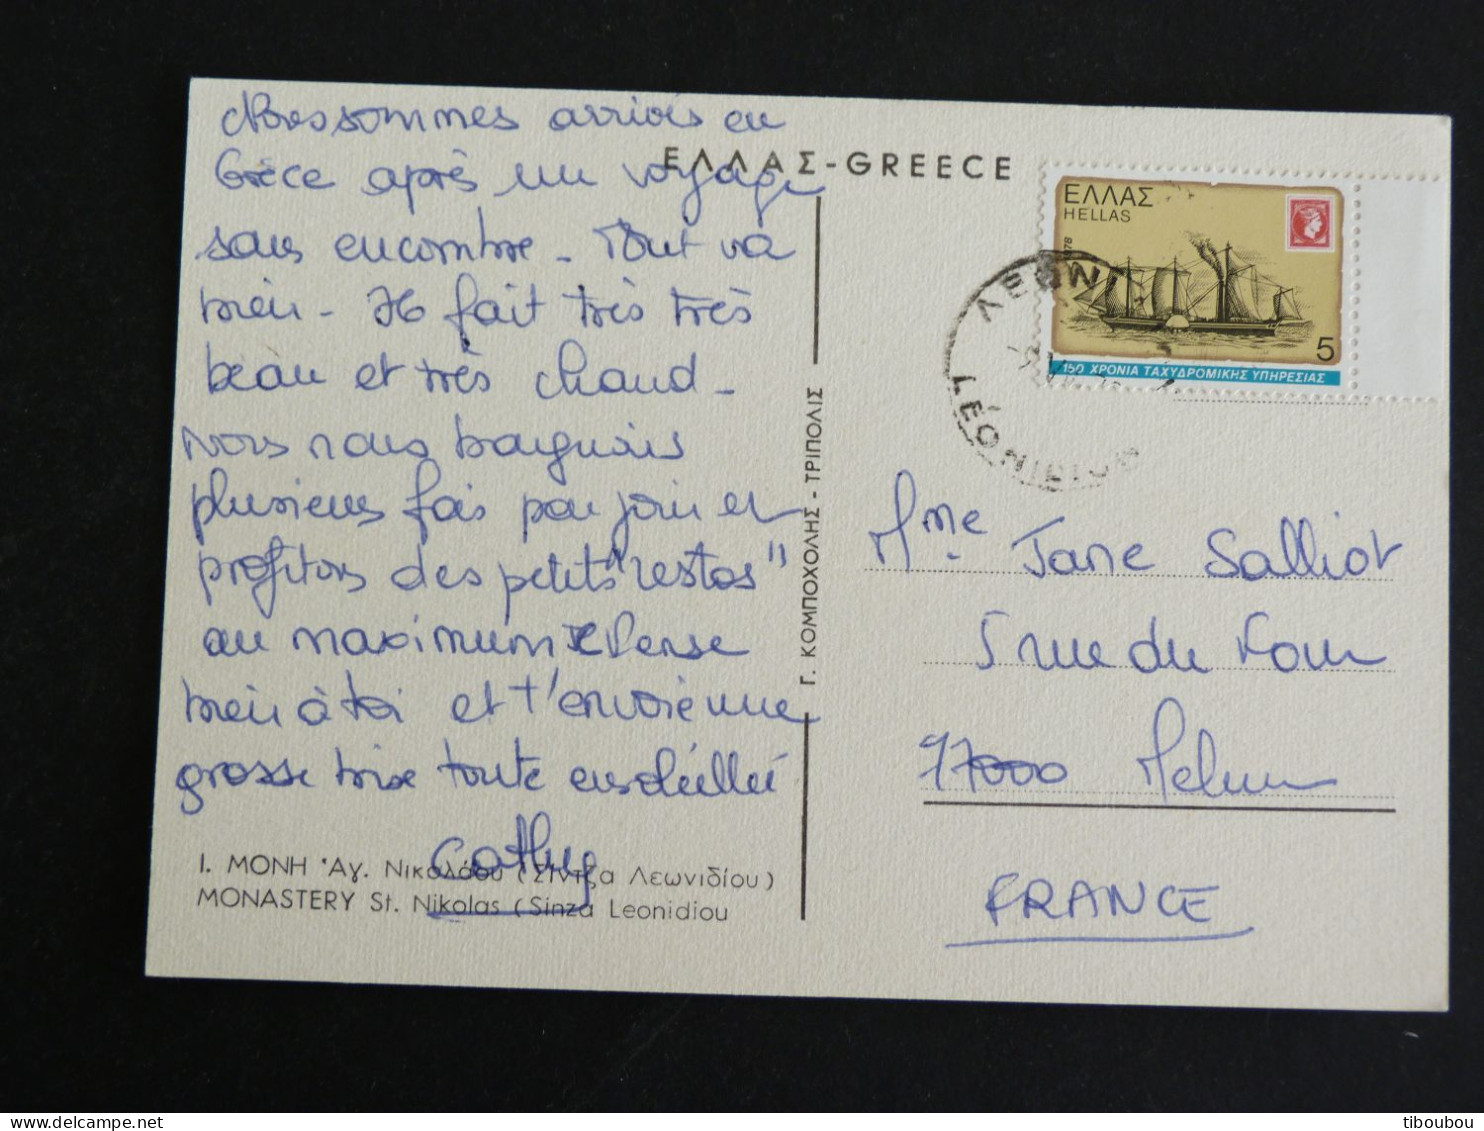 Nous sommes arrivés en
Grèce après un voyage
sans encombre - Tout va
bien - Il fait très très
beau et très chaud -
Nous nous baignons
plusieurs fois par jour et
profitons des petits "restos"
au maximum Je Pense
bien à toi et t'envoie une
grosse bise toute ensoleillée
Cathy
Ι. ΜΟΝΗ Ἁγ. Νικολάου (Σίντζα Λεωνιδίου)
MONASTERY St. Nikolas (Sinza Leonidiou
ΕΛΛΑΣ-GREECE
Γ. ΚΟΜΠΟΧΟΛΗΣ - ΤΡΙΠΟΛΙΣ
ΕΛΛΑΣ
HELLAS
5
150 ΧΡΟΝΙΑ ΤΑΧΥΔΡΟΜΙΚΗΣ ΥΠΗΡΕΣΙΑΣ
ΛΕΩΝΙ
LEONIDION
Mme Jane Salliot
5 rue du Four
77000 Melun
FRANCE
tiboubou